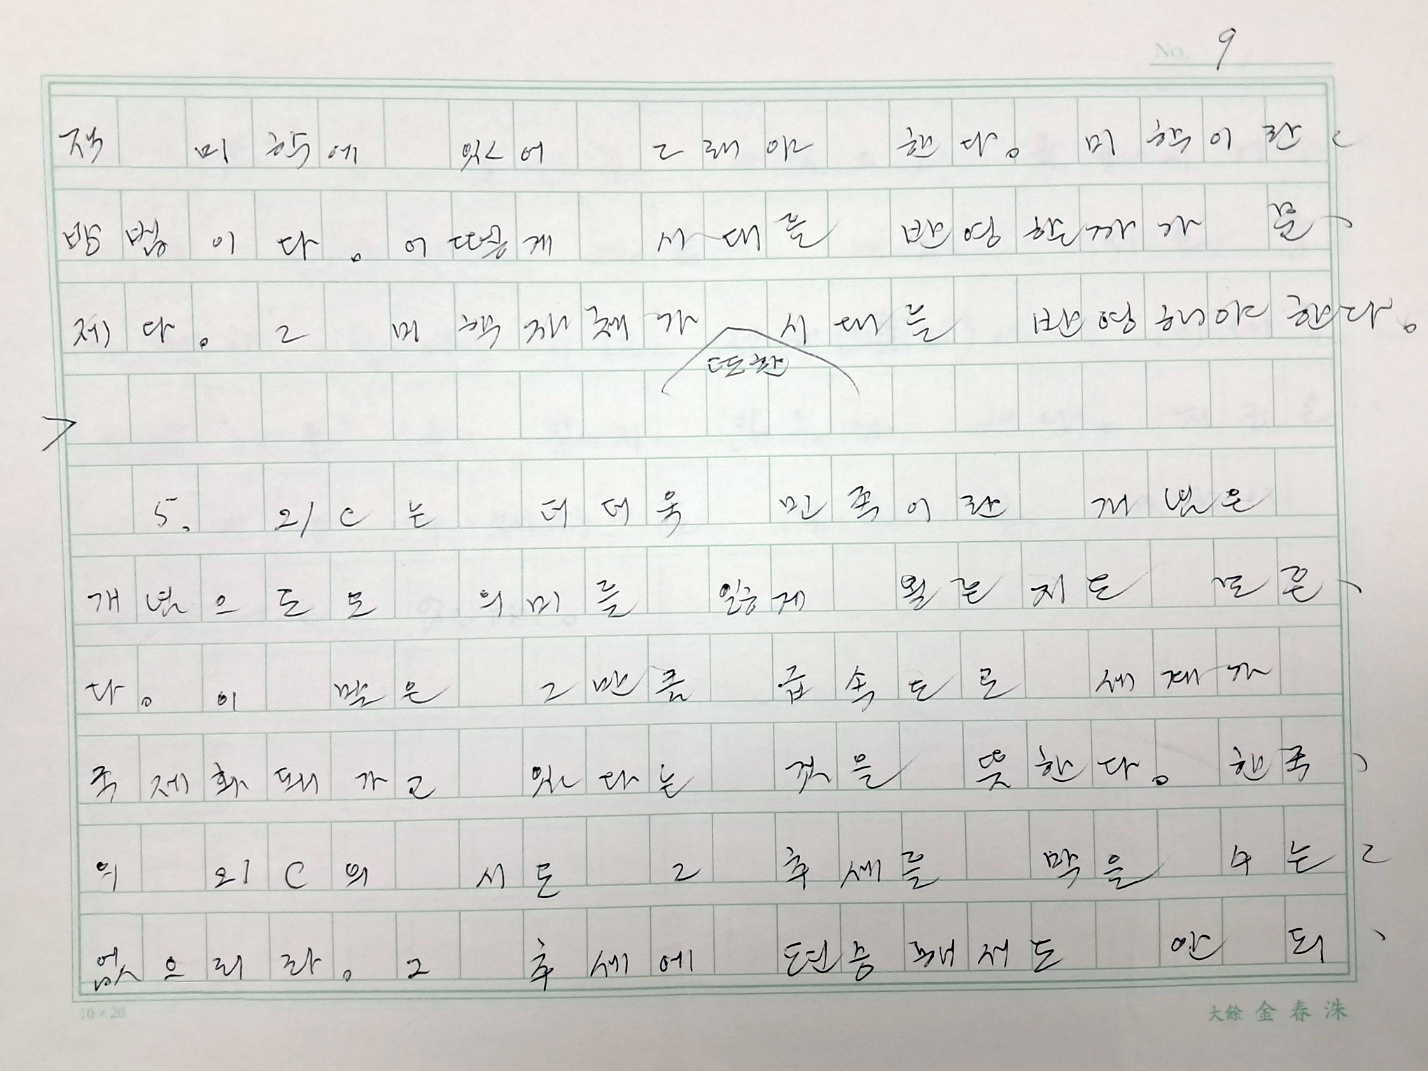 No. 9
적 미학에 있어 그래야 한다. 미학이란
방법이다. 어떻게 시대를 반영할까가 문
제다. 그 미학자체가 시대를 반영해야 한다.
또한
5. 21C는 더더욱 민족이란 개념은
개념으로도 의미를 잃게 될는지도 모른
다. 이 말은 그만큼 급속도로 세계가
국제화돼 가고 있다는 것을 뜻한다. 한국
의 21C의 시도 그 추세를 막을 수는
없으리라. 그 추세에 편승해서도 안 되
10×20
大餘 金春洙